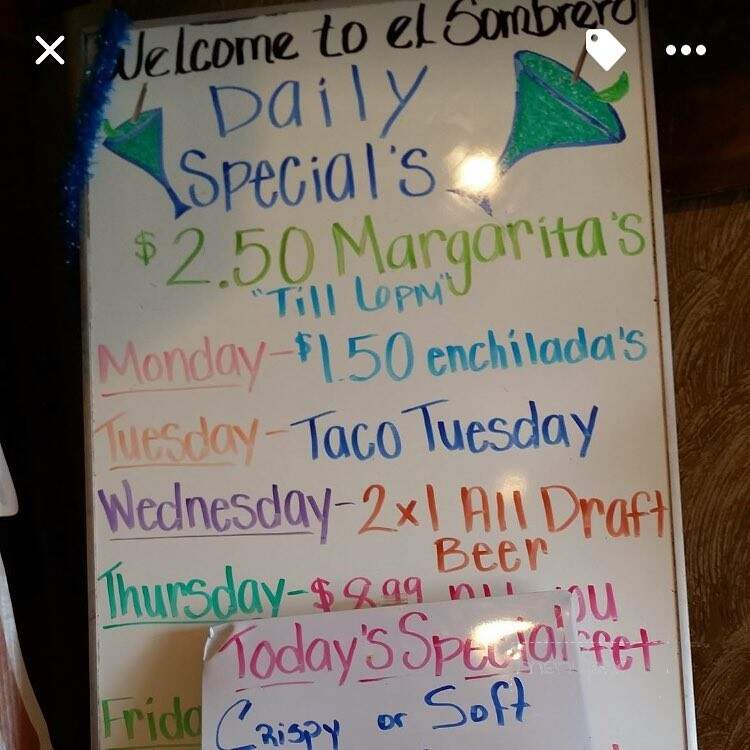 Welcome to el Sombrero
Daily
Special's
$2.50 Margarita's
"Till 6PM"
Monday-$1.50 enchilada's
Tuesday-Taco Tuesday
Wednesday-2x1 All Draft
Beer
Thursday-$8.99
Today's Special
Crispy or Soft